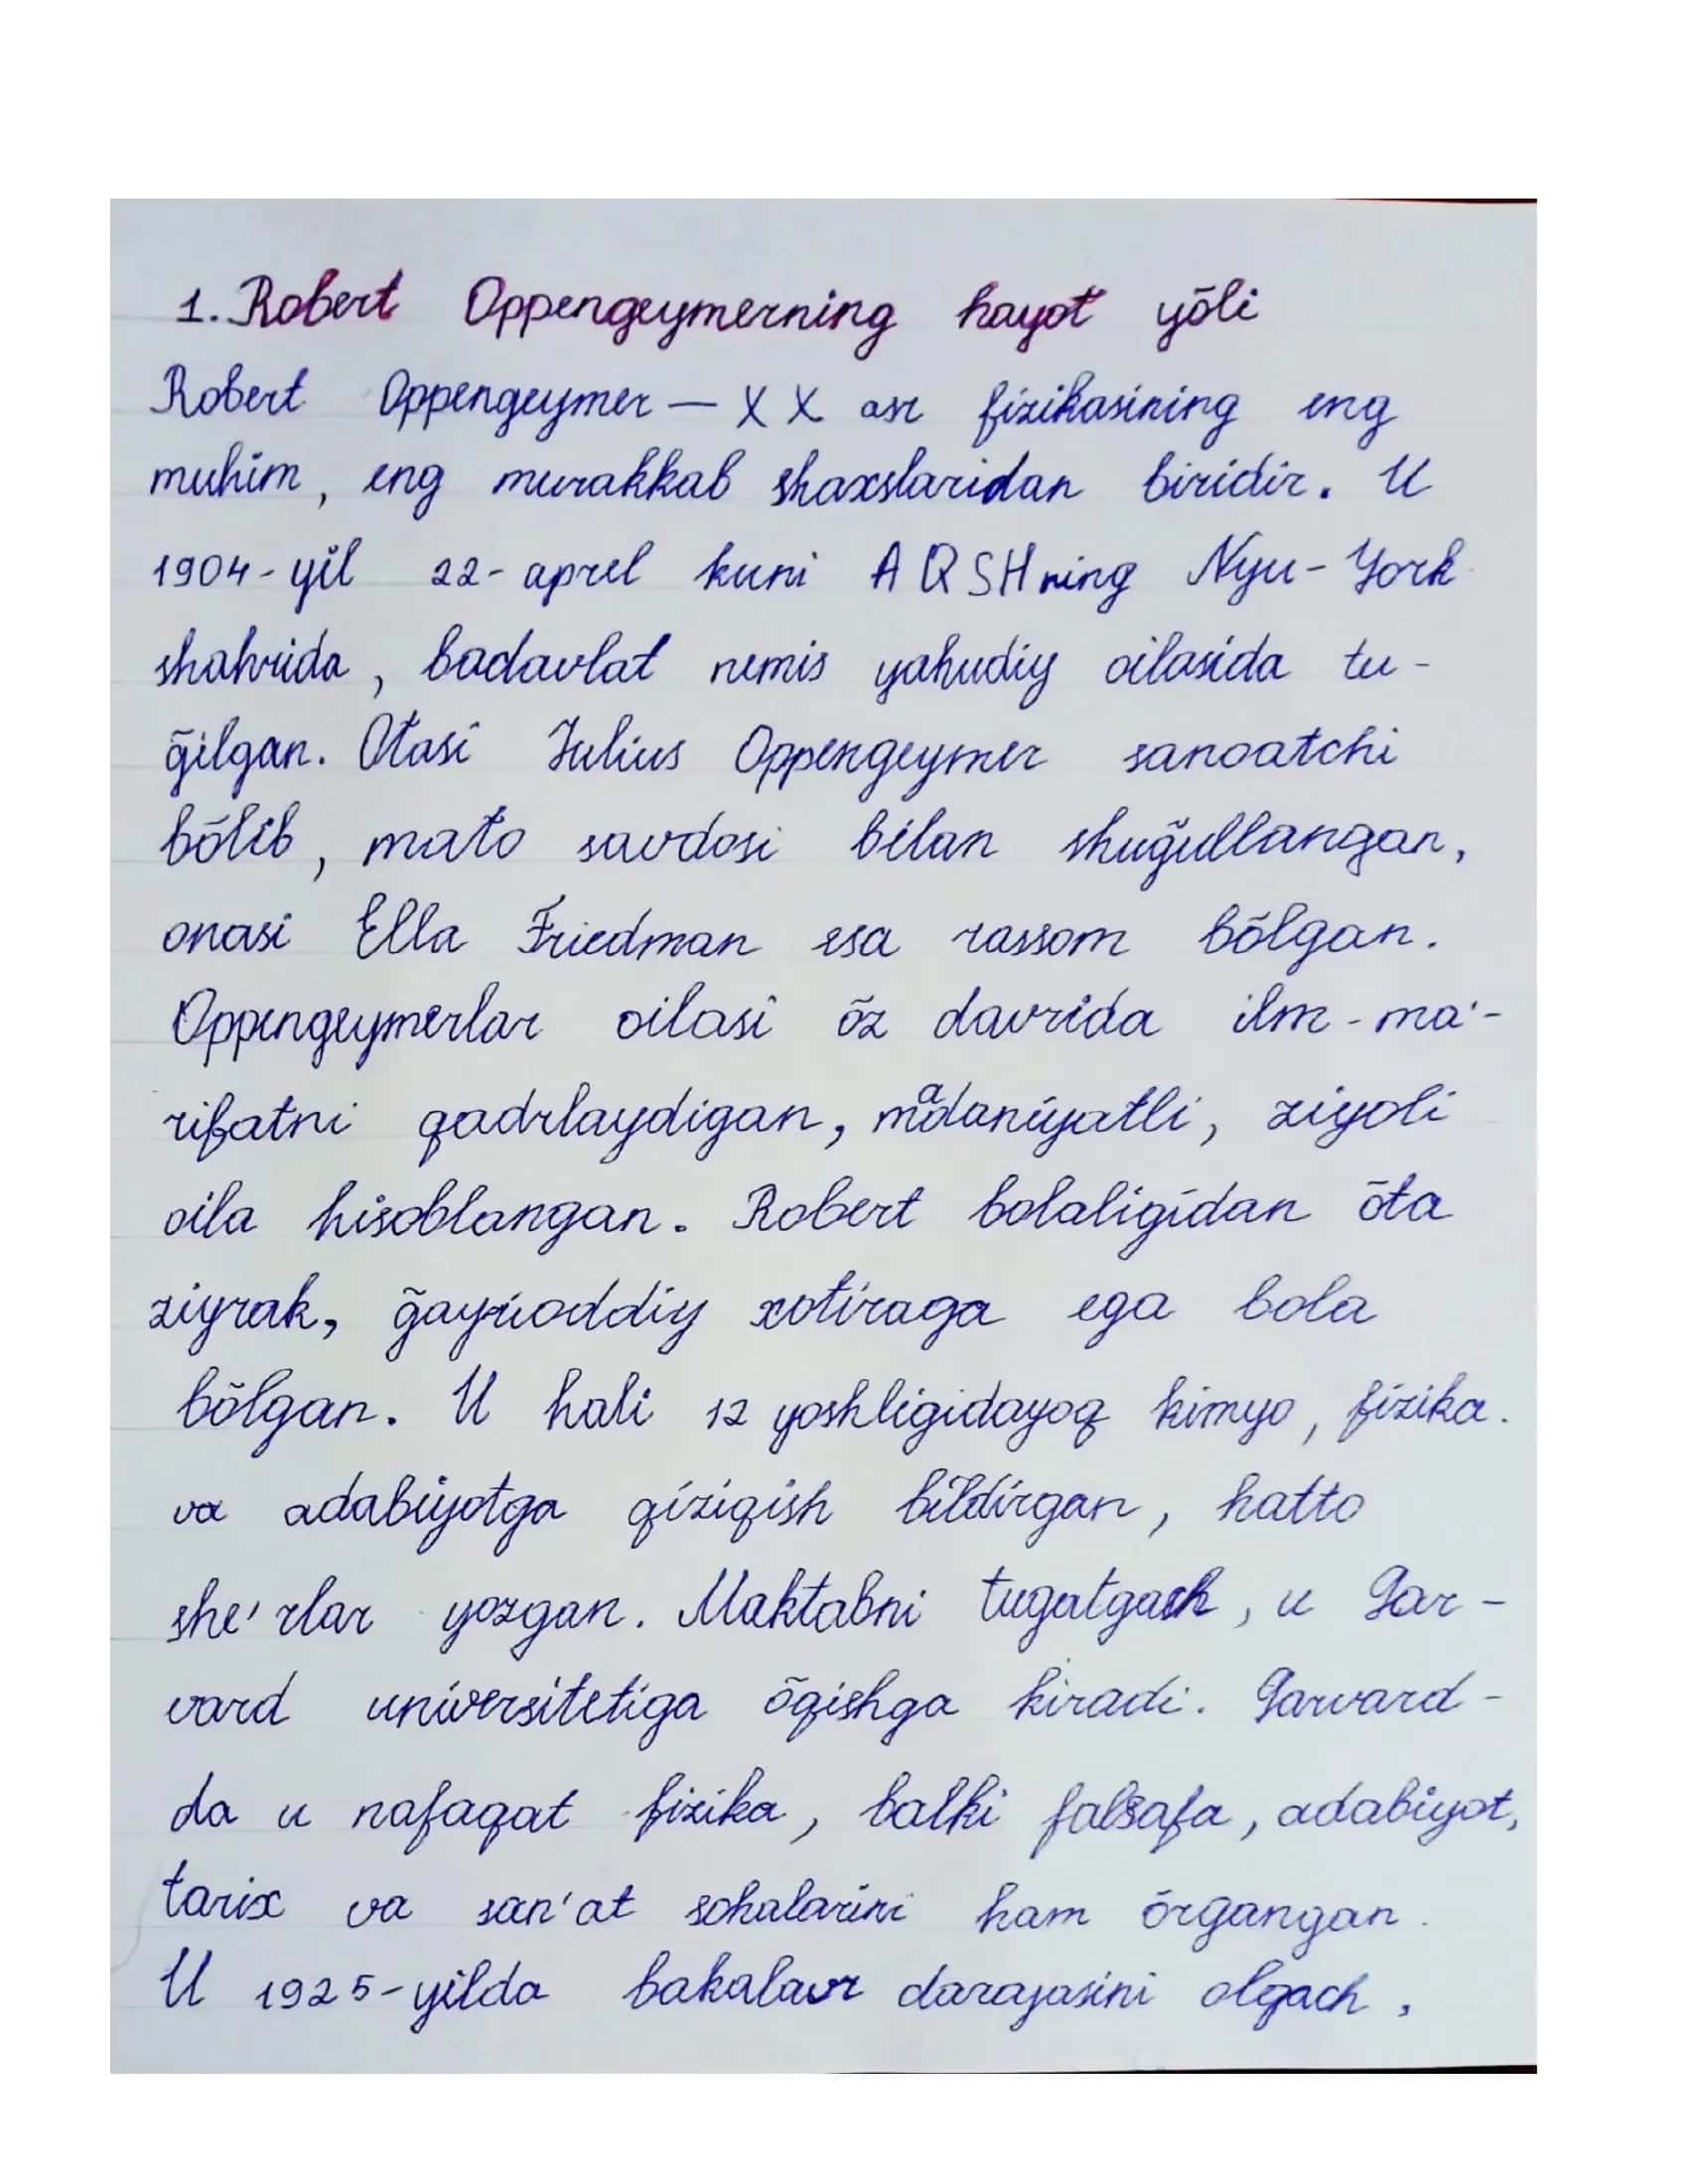 1. Robert Oppengeymerning hayot yõli
Robert Oppengeymer — XX asr fizikasining eng
muhim, eng murakkab shaxslaridan biridir. U
1904-yil 22-aprel kuni AQSHning Nyu-York
shahrida, badavlat nemis yahudiy oilasida tu-
g̃ilgan. Otasi Julius Oppengeymer sanoatchi
bõlib, mato savdosi bilan shug̃ullangan,
onasi Ella Friedman esa rassom bõlgan.
Oppengeymerlar oilasi õz davrida ilm-ma'-
rifatni qadrlaydigan, madaniyatli, ziyoli
oila hisoblangan. Robert bolaligidan õta
ziyrak, g̃ayrioddiy xotiraga ega bola
bõlgan. U hali 12 yoshligidayoq kimyo, fizika
va adabiyotga qiziqish bildirgan, hatto
she'rlar yozgan. Maktabni tugatgach, u Gar-
vard universitetiga õqishga kiradi. Garvard-
da u nafaqat fizika, balki falsafa, adabiyot,
tarix va san'at sohalarini ham õrgangan.
U 1925-yilda bakalavr darajasini olgach,